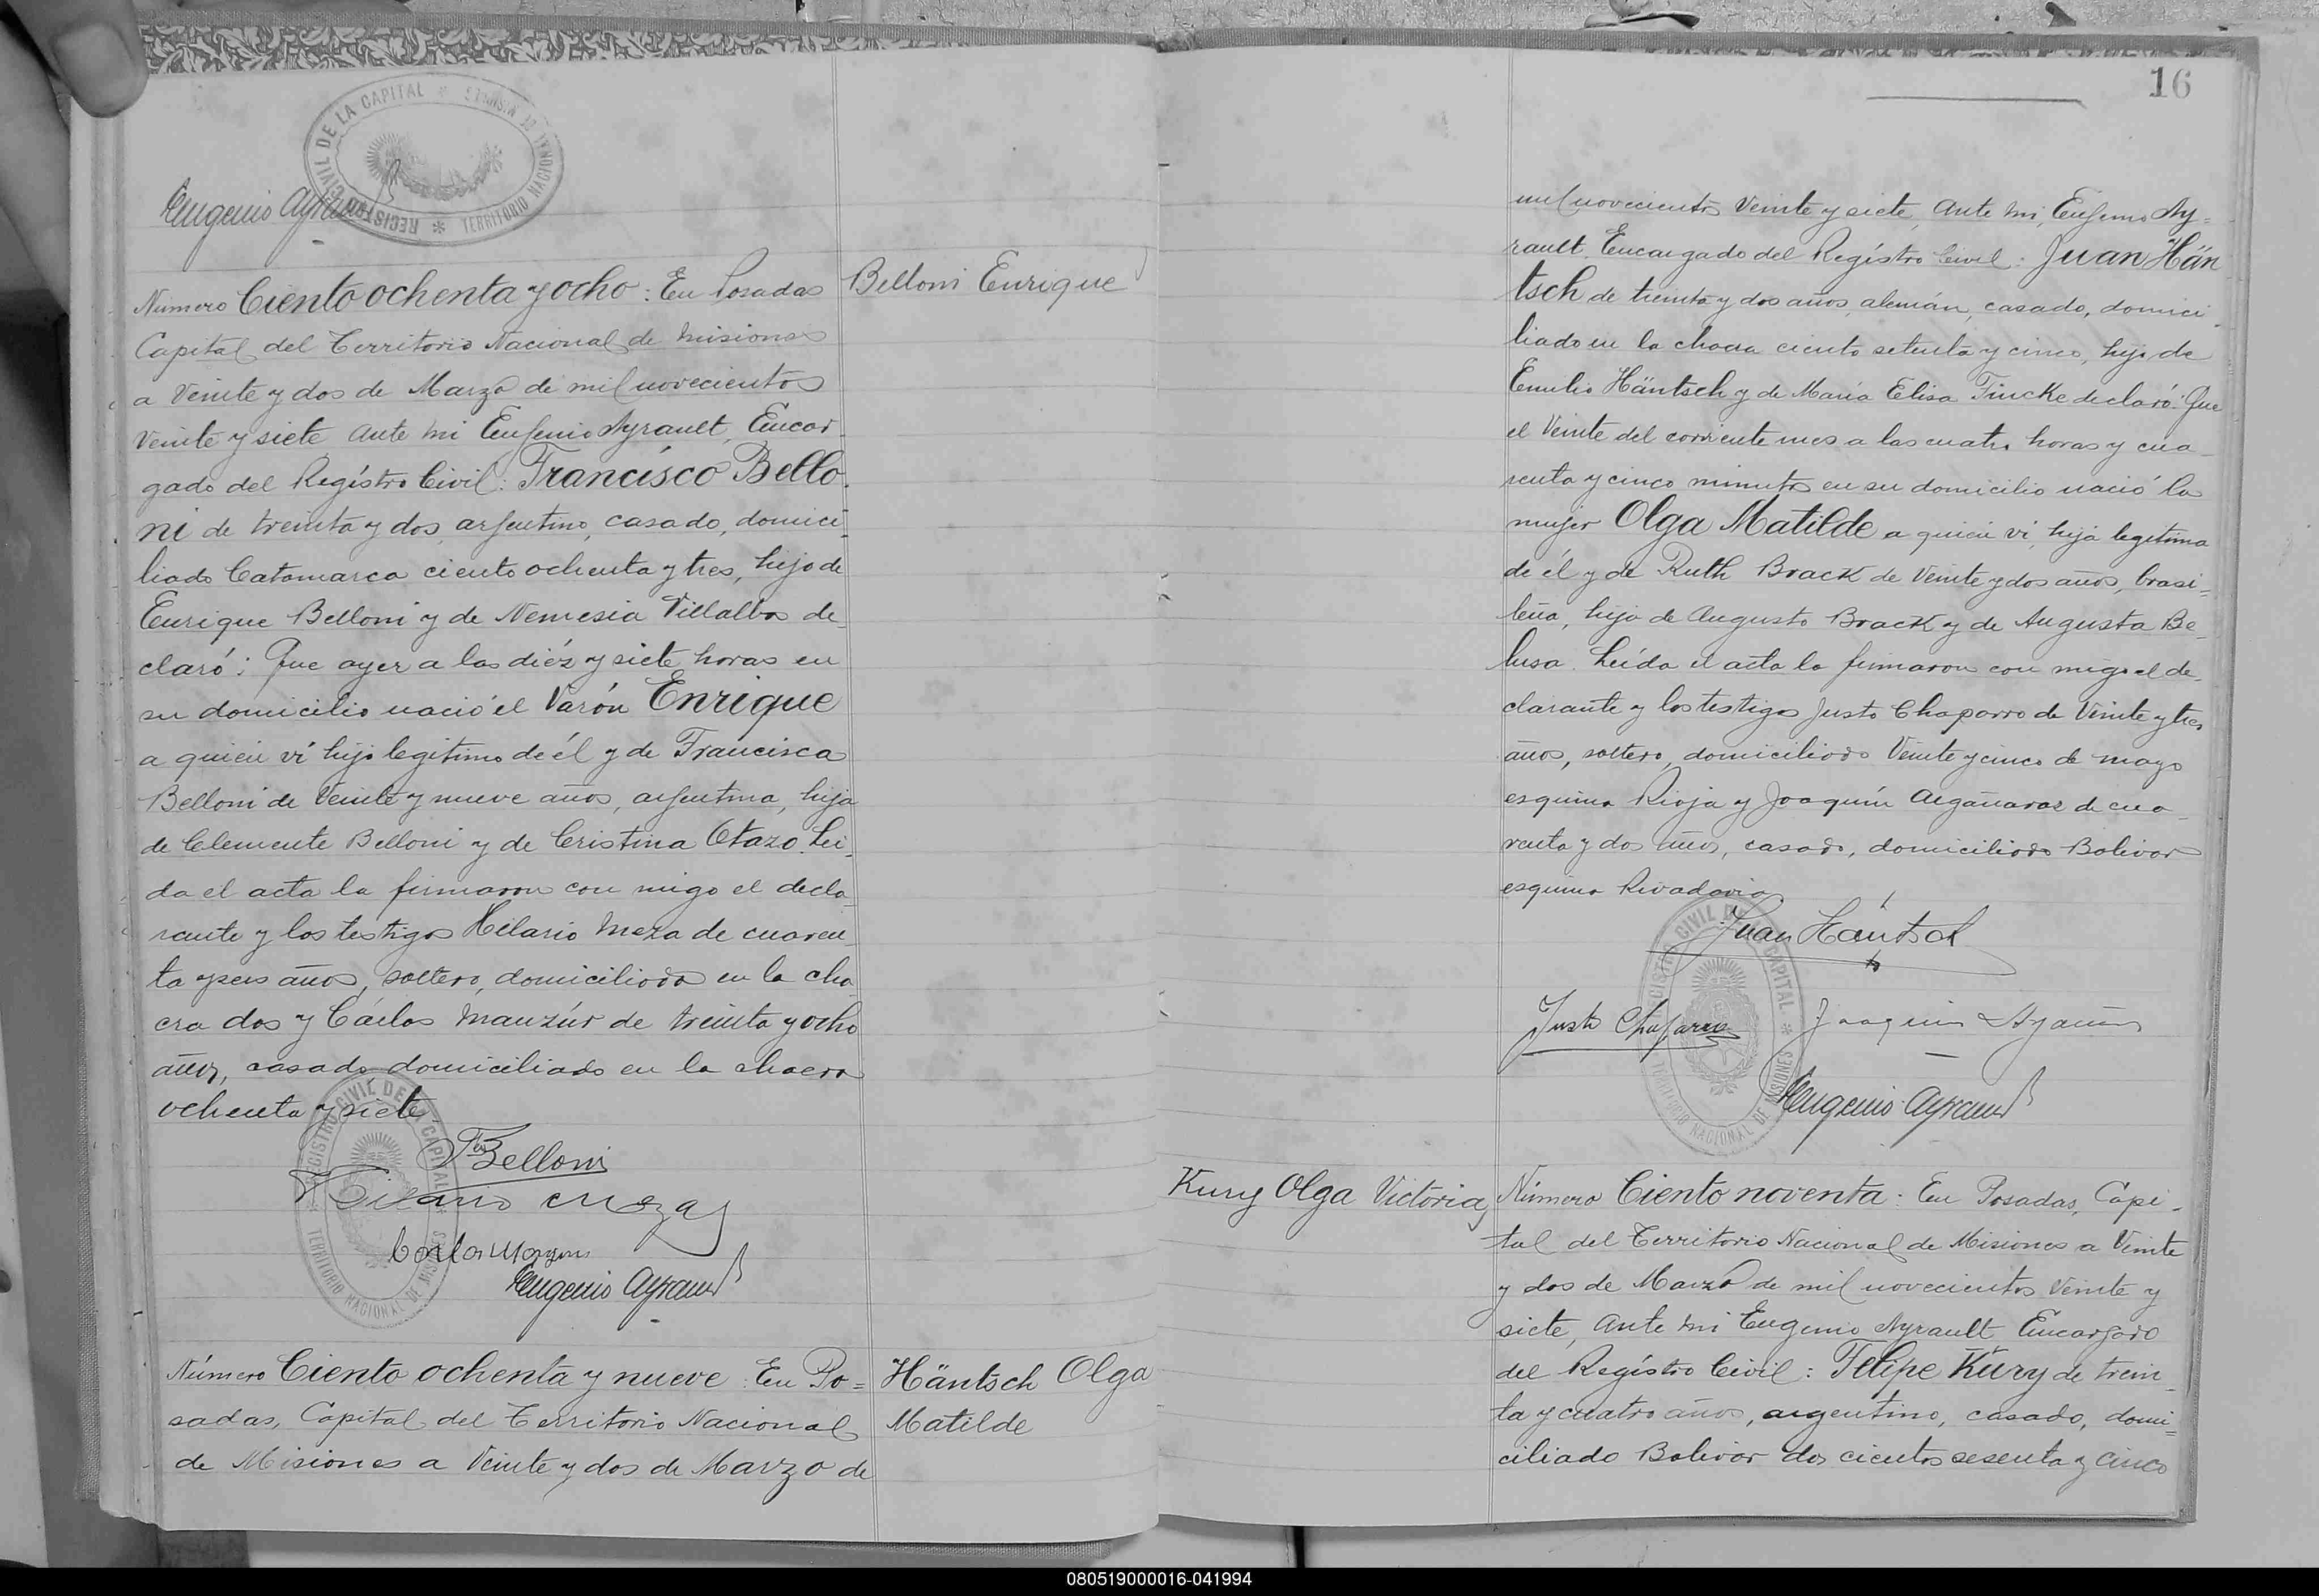 REGISTRO CIVIL DE LA CAPITAL * TERRITORIO NACIONAL DE MISIONES *
Eugenio Ayrault
Número Ciento ochenta y ocho: En Posadas
Capital del Territorio Nacional de Misiones
a Veinte y dos de Marzo de mil novecientos
Veinte y siete Ante mi Eugenio Ayrault, Encar-
gado del Registro Civil: Francisco Bello-
ni de treinta y dos, argentino, casado, domici-
liado Catamarca ciento ochenta y tres, hijo de
Enrique Belloni y de Nemesia Villalba de-
claró: Que ayer a las diéz y siete horas en
su domicilio nació el Varón Enrique
a quien ví hijo legítimo de él y de Francisca
Belloni de Veinte y nueve años, argentina, hija
de Clemente Belloni y de Cristina Otazo. Lei-
da el acta la firmaron con migo el decla-
rante y los testigos Hilario Meza de cuaren-
ta y seis años, soltero, domiciliado en la cha-
cra dos y Cárlos Manzúr de treinta y ocho
años, casado domiciliado en la chacra
ochenta y siete
REGISTRO CIVIL DE LA CAPITAL * TERRITORIO NACIONAL DE MISIONES *
Fco Belloni
Hilario Meza
Carlos Manzur
Eugenio Ayrault
Número Ciento ochenta y nueve: En Po=
sadas, Capital del Territorio Nacional
de Misiones a Veinte y dos de Marzo de
Belloni Enrique
Häntsch Olga
Matilde
16
mil novecientos Veinte y siete, Ante mi, Eugenio Ay=
rault, Encargado del Registro Civil: Juan Hän
tsch de treinta y dos años, alemán, casado, domici-
liado en la chacra ciento setenta y cinco, hijo de
Emilio Häntsch y de María Elisa Fincke declaró: Que
el Veinte del corriente mes a las cuatro horas y cua-
renta y cinco minutos en su domicilio nació la
mujer Olga Matilde a quien ví, hija legítima
de él y de Ruth Brack de Veinte y dos años, brasi-
leña, hija de Augusto Brack y de Augusta Be-
lusa. Leída el acta la firmaron con migo el de-
clarante y los testigos Justo Chaparro de Veinte y tres
años, soltero, domiciliado Veinte y cinco de mayo
esquina Rioja y Joaquín Argañaraz de cua-
renta y dos años, casado, domiciliado Bolivar
esquina Rivadavia
REGISTRO CIVIL DE LA CAPITAL * TERRITORIO NACIONAL DE MISIONES
Juan Häntsch
Justo Chaparro
Joaquin
Eugenio Ayrault
Kury Olga Victoria
Número Ciento noventa: En Posadas, Capi-
tal del Territorio Nacional de Misiones a Veinte
y dos de Marzo de mil novecientos Veinte y
siete, Ante mi Eugenio Ayrault Encargado
del Registro Civil: Felipe Kury de trein-
ta y cuatro años, argentino, casado, domi=
ciliado Bolivar dos cientos sesenta y cinco
080519000016-041994